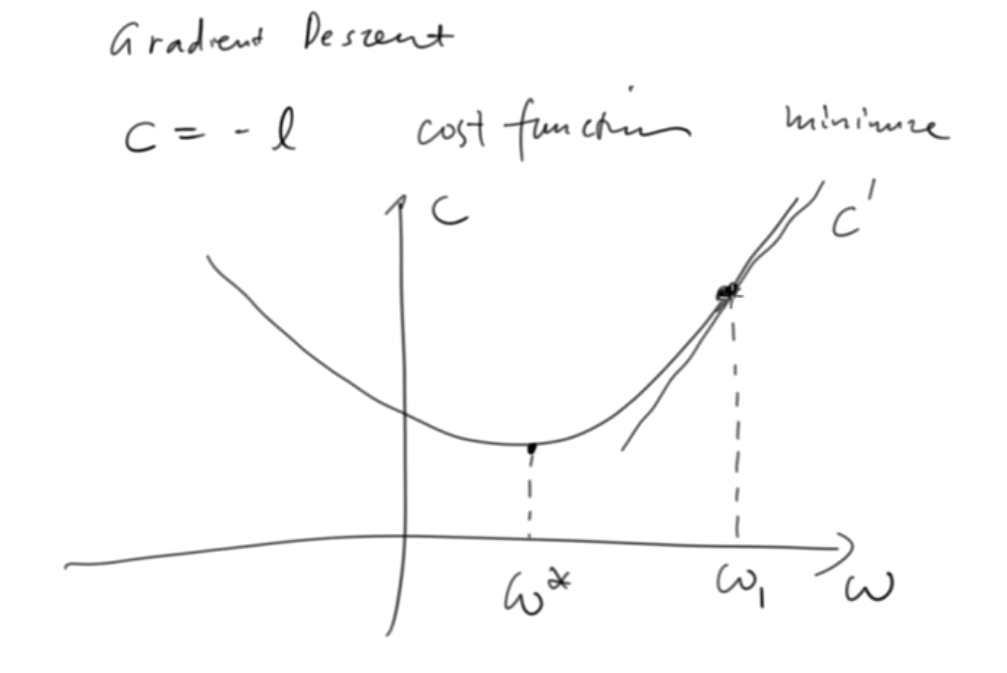 Gradient Descent
C = - l cost function minimize
C
C'
ω* ω₁ ω